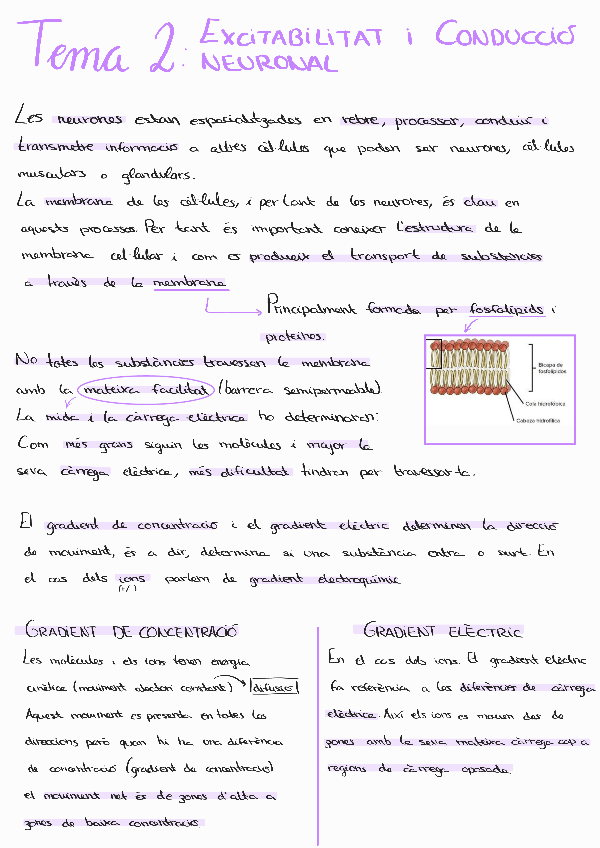 Tema 2: EXCITABILITAT i CONDUCCIÓ
NEURONAL
Les neurones estan especialitzades en rebre, processar, conduir i
transmetre informació a altres cèl·lules que poden ser neurones, cèl·lules
musculars o glandulars.
La membrana de les cèl·lules, i per tant de les neurones, és clau en
aquests processos. Per tant és important conèixer l'estructura de la
membrana cel·lular i com es produeix el transport de substàncies
a través de la membrana
Principalment formada per fosfolípids i
proteïnes.
No totes les substàncies travessen la membrana
amb la mateixa facilitat (barrera semipermeable)
La mida i la càrrega elèctrica ho determinaran:
Com més grans siguin les molècules i major la
seva càrrega elèctrica, més dificultat tindran per travessar-la.
Bicapa de
fosfolípidos
Cola hidrofóbica
Cabeza hidrofílica
El gradient de concentració i el gradient elèctric determinen la direcció
de moviment, és a dir, determina si una substància entra o surt. En
el cas dels ions parlem de gradient electroquímic
(+/-)
GRADIENT DE CONCENTRACIÓ
Les molècules i els ions tenen energia
cinètica (moviment aleatori constant) → difusió
Aquest moviment es presenta en totes les
direccions però quan hi ha una diferència
de concentració (gradient de concentració)
el moviment net és de zones d'alta a
zones de baixa concentració
GRADIENT ELÈCTRIC
En el cas dels ions. El gradient elèctric
fa referència a les diferències de càrrega
elèctrica. Així els ions es mouen des de
zones amb la seva mateixa càrrega cap a
regions de càrrega oposada.